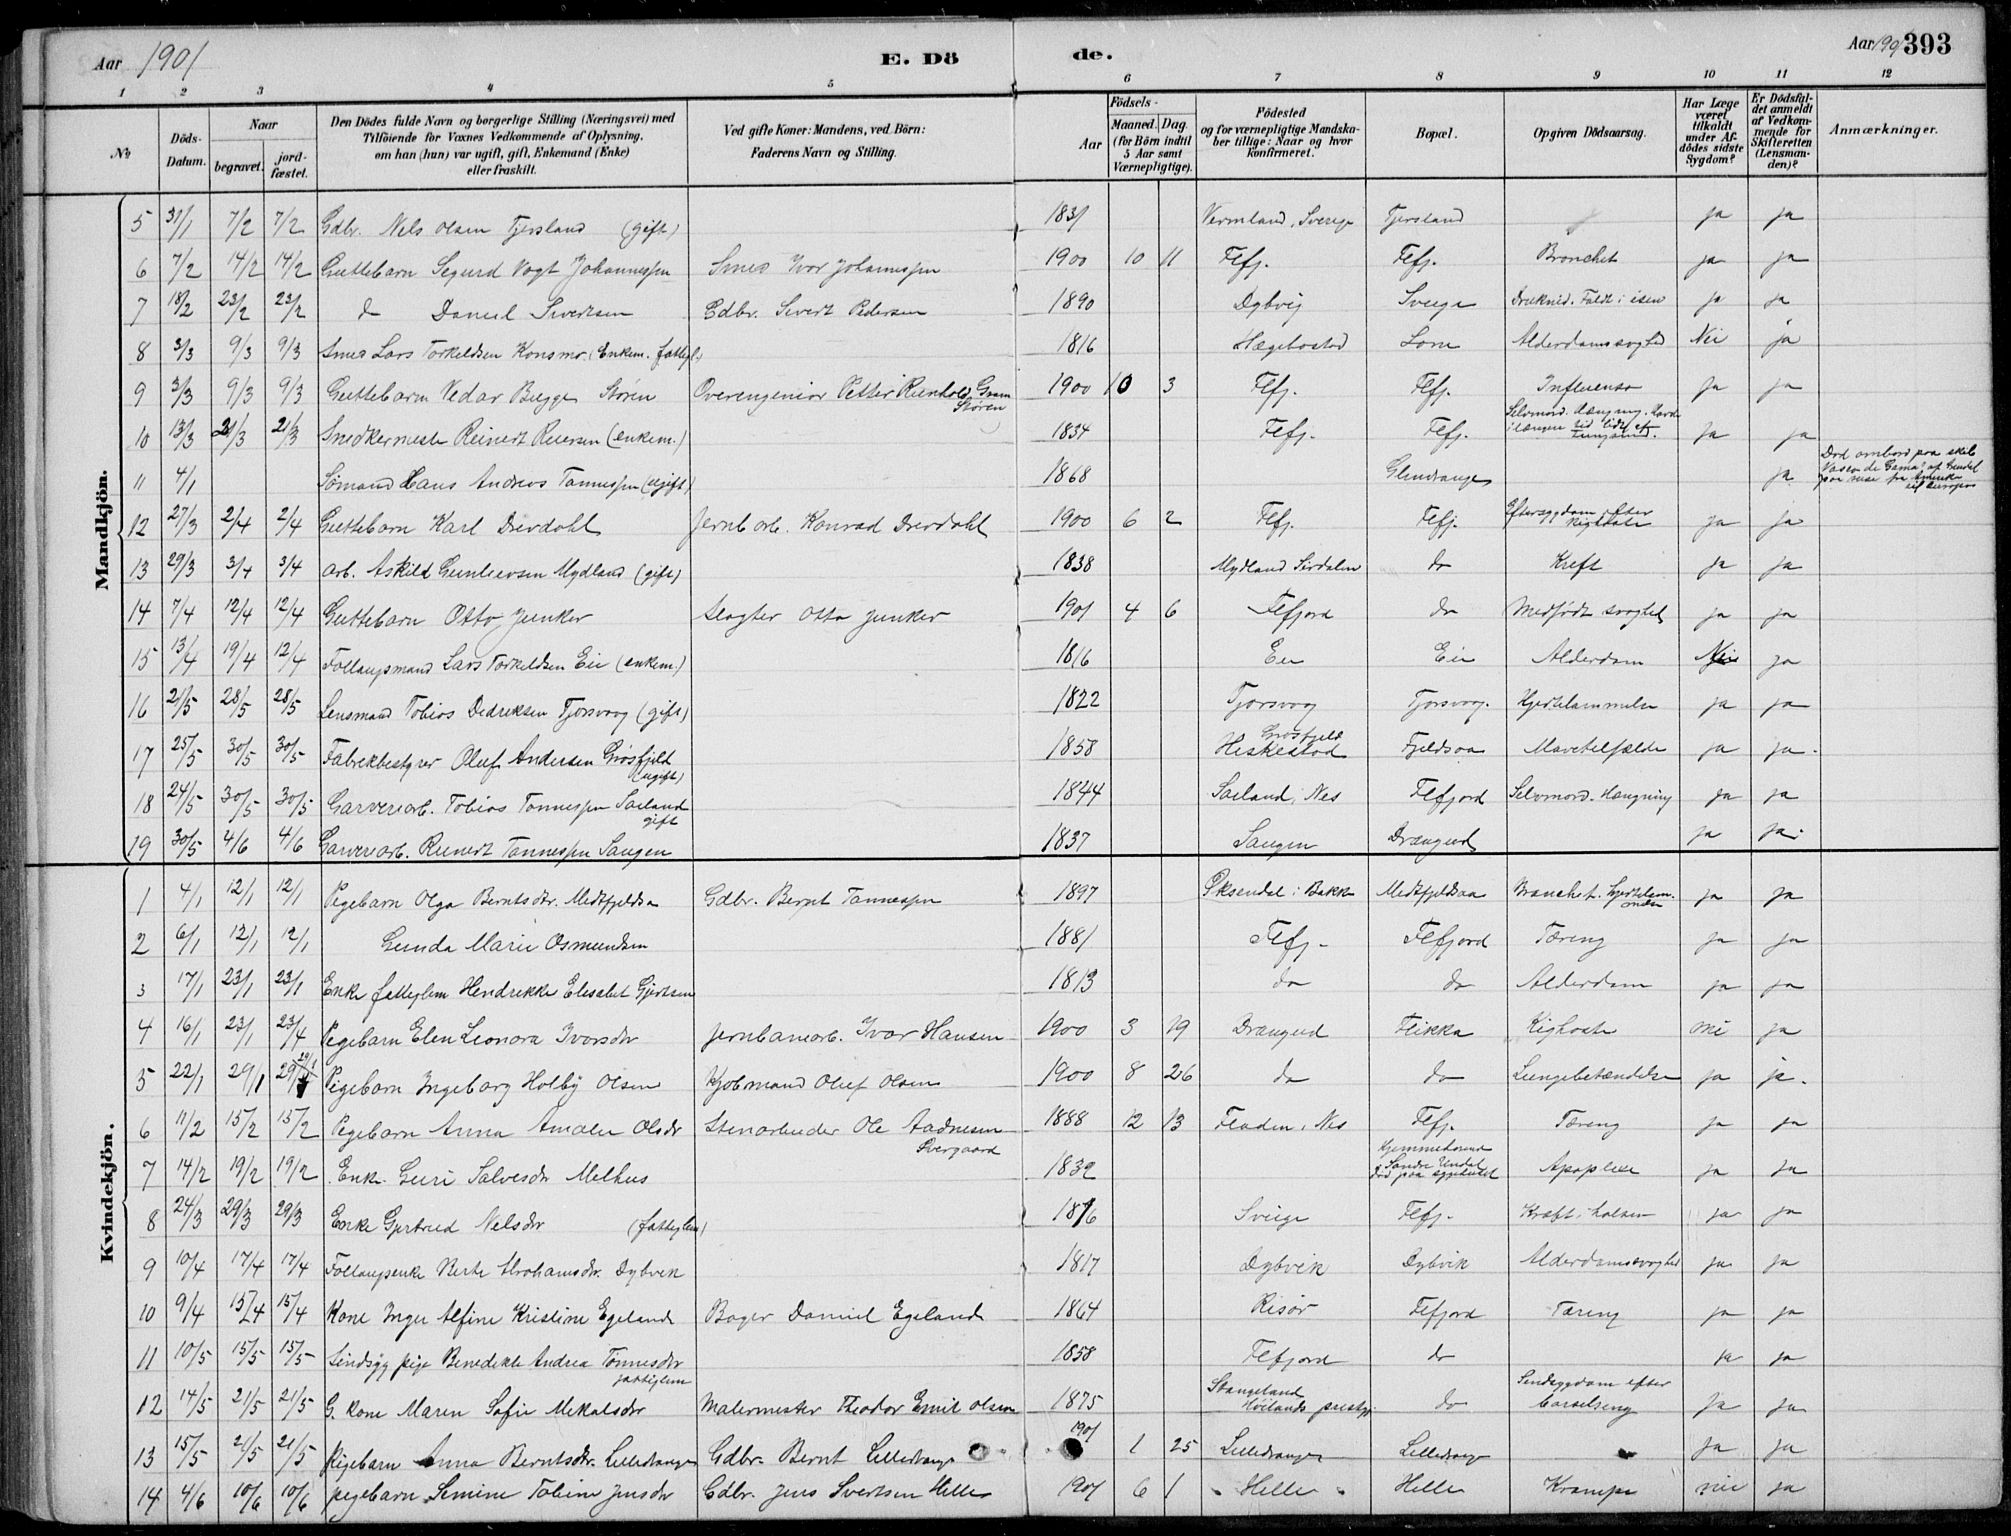 Aar 1901
E. Dö
de.
Aar 1901 393
1 2 3 4 5 6 7 8 9 10 11 12
No
Döds-Datum.
Naar
begravet.
jord-fæstet.
Den Dödes fulde Navn og borgerlige Stilling (Næringsvei) med
Tilföiende for Voxnes Vedkommende af Oplysning,
om han (hun) var ugift, gift, Enkemand (Enke)
eller fraskilt.
Ved gifte Koner: Mandens, ved Börn:
Faderens Navn og Stilling.
Födsels-
Aar
Maaned. Dag.
(for Börn indtil
5 Aar samt
Værnepligtige).
Födested
og for værnepligtige Mandska-
ber tillige: Naar og hvor
konfirmeret.
Bopæl.
Opgiven Dödsaarsag.
Har Læge
været
tilkaldt
under Af-
dödes sidste
Sygdom?
Er Dödsfal-
det anmeldt
af Vedkom-
mende for
Skifteretten
(Lensman-
den)?
Anmærkninger.
Mandkjön.
5 31/1 7/2 7/2 Gdbr. Nels Olsen Tjersland (gift) 1831 Vermland, Sverige Tjersland ja ja
6 7/2 14/2 14/2 Guttebarn Segurd Vogt Johannessen Smed Ivar Johannessen 1900 10 11 Flfj. Flfj. Bronchet ja ja
7 18/2 23/2 23/2 do Daniel Sivertsen Gdbr. Sivert Pedersen 1890 Dybvig Sveige Druknid. Faldt i isen ja ja
8 3/3 9/3 9/3 Smed Lars Torkeldsen Konsmo (Enkem. fattigl.) 1816 Hægebostad Lone Alderdomssvaghed Nei ja
9 3/3 9/3 9/3 Guttebarn Vedar Bugge Støren Overengeniør Petter Reinhold Gram Støren 1900 10 3 Flfj. Flfj. Influensa ja ja
10 13/3 21/3 21/3 Snedkermester Reinert Reiersen (enkem.) 1834 Flfj. Flfj. Selvmord. Hængning. Havde i længere tid lidt af ja ja
11 4/1 Sømand Hans Andreas Tønnessen (ugift) 1868 Glendrange ja Død ombord paa skib Vasco de Gama af Arendal paa reise fra Amerika til Europa
12 27/3 2/4 2/4 Guttebarn Karl Drevdahl Jernb.arb. Konrad Drevdahl 1900 6 2 Flfj. Flfj. Eftersygdom efter kighoste ja ja
13 29/3 3/4 3/4 Arb. Askild Gunleivsen Mydland (gift) 1838 Mydland Sirdalen do Kreft ja ja
14 7/4 12/4 12/4 Guttebarn Otto Junker Slagter Otto Junker 1901 4 6 Flfjord do Medfødt svaghed ja ja
15 13/4 19/4 12/4 Follaugsmand Lars Torkeldsen Eie (enkem.) 1816 Eie Eie Alderdom Nei ja
16 21/5 28/5 28/5 Lensmand Tobias Dedriksen Tjørsvaag (gift) 1822 Tjorsvog Tjorsvog. Hjertelammelse ja ja
17 25/5 30/5 30/5 Fabrikbestyrer Oluf Andersen Grøsfjeld (ugift) 1858 Grøsfjeld Heskestad Fjeldsaa Mavetilfælde ja ja.
18 24/5 30/5 30/5 Garveriarb. Tobias Tønnessen Saeland gift 1844 Saeland, Nes Flfjord Selvmord. Hængning ja ja
19 30/5 4/6 4/6 Garveriarb. Reinert Tønnessen Saugen 1837 Saugen Drangeid ja ja.
Kvindekjön.
1 4/1 12/1 12/1 Pigebarn Olga Berntsdtr. Medtfjeldsa Gdbr. Bernt Tønnessen 1897 Øksendal i Bakke Medtfjeldsaa Bronchet. Hjertelammelse ja ja
2 6/1 12/1 12/1 Gunda Marie Osmundsen 1881 Flfj. Flfjord Tæring ja ja
3 17/1 23/1 23/1 Enke fattiglem Hendrikke Elesabet Gjertsen 1813 do do Alderdom ja ja
4 16/1 23/1 23/4 Pigebarn Elen Leonora Ivarsdtr Jernbanearb. Ivar Hansen 1900 3 19 Drangeid Flikka Kighoste nei ja
5 22/1 29/1 29/1 Pigebarn Ingeborg Holby Olsen Kjøbmand Oluf Olsen 1900 8 26 do do Lungebetændelse ja ja.
6 11/2 15/2 15/2 Pigebarn Anna Amalie Olsdtr Stenarbeider Ole Aadnesen Overgaard 1888 12 13 Fladen, Nes Flfj. Tæring ja ja
7 14/2 19/2 19/2 Enke. Guri Salvesdtr Melhus 1832 Hjemmehørende Søndre Undal død paa sygehuset Apoplexi ja ja
8 24/3 29/3 29/3 Enke Gjertrud Nelsdtr (fattiglem) 1816 Sveige Flfj. Kræft i halsen ja ja
9 10/4 17/4 17/4 Follaugsenke Berte Abrahamsdtr. Dybvik 1817 Dybvik Dybvik Alderdomssvaghed ja ja
10 9/4 15/4 15/4 Kone Inger Alfine Kristine Egeland Bager Daniel Egeland 1864 Risør Flfjord Tæring ja ja
11 10/5 15/5 15/5 Sindsyg pige Benedikte Andrea Tønnesdtr fattiglem 1858 Flfjord do ja ja
12 14/5 21/5 21/5 G. kone Maren Sofie Mekalsdtr Malermester Theodor Emil Olsen 1875 Stangeland Høilands prestgj. do Sindsygdom efter barselseng ja ja
13 15/5 21/5 21/5 Pigebarn Anna Berntsdtr. Lilledrange Gdbr. Bernt Lilledrange 1901 1 25 Lilledrange Lilledrange ja ja
14 4/6 10/6 10/6 pigebarn Semine Tobine Jensdtr Gdbr. Jens Svertsen Helle 1901 6 1 Helle Helle Krampe nei ja